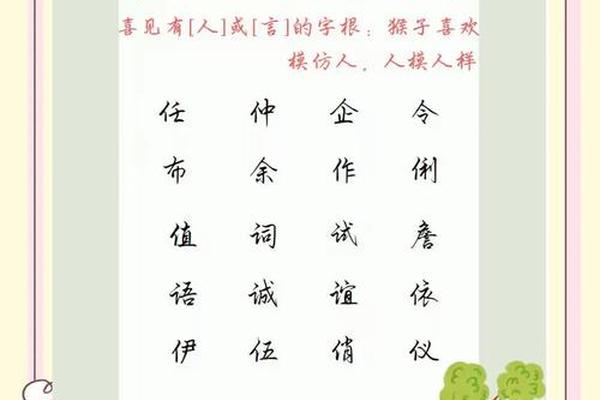 喜见有[人]或[言]的字根：猴子喜欢
模仿人，人模人样
任 仲 企 令
布 余 作 俐
值 词 试 詹
语 诚 谊 依
伊 伍 俏 仪